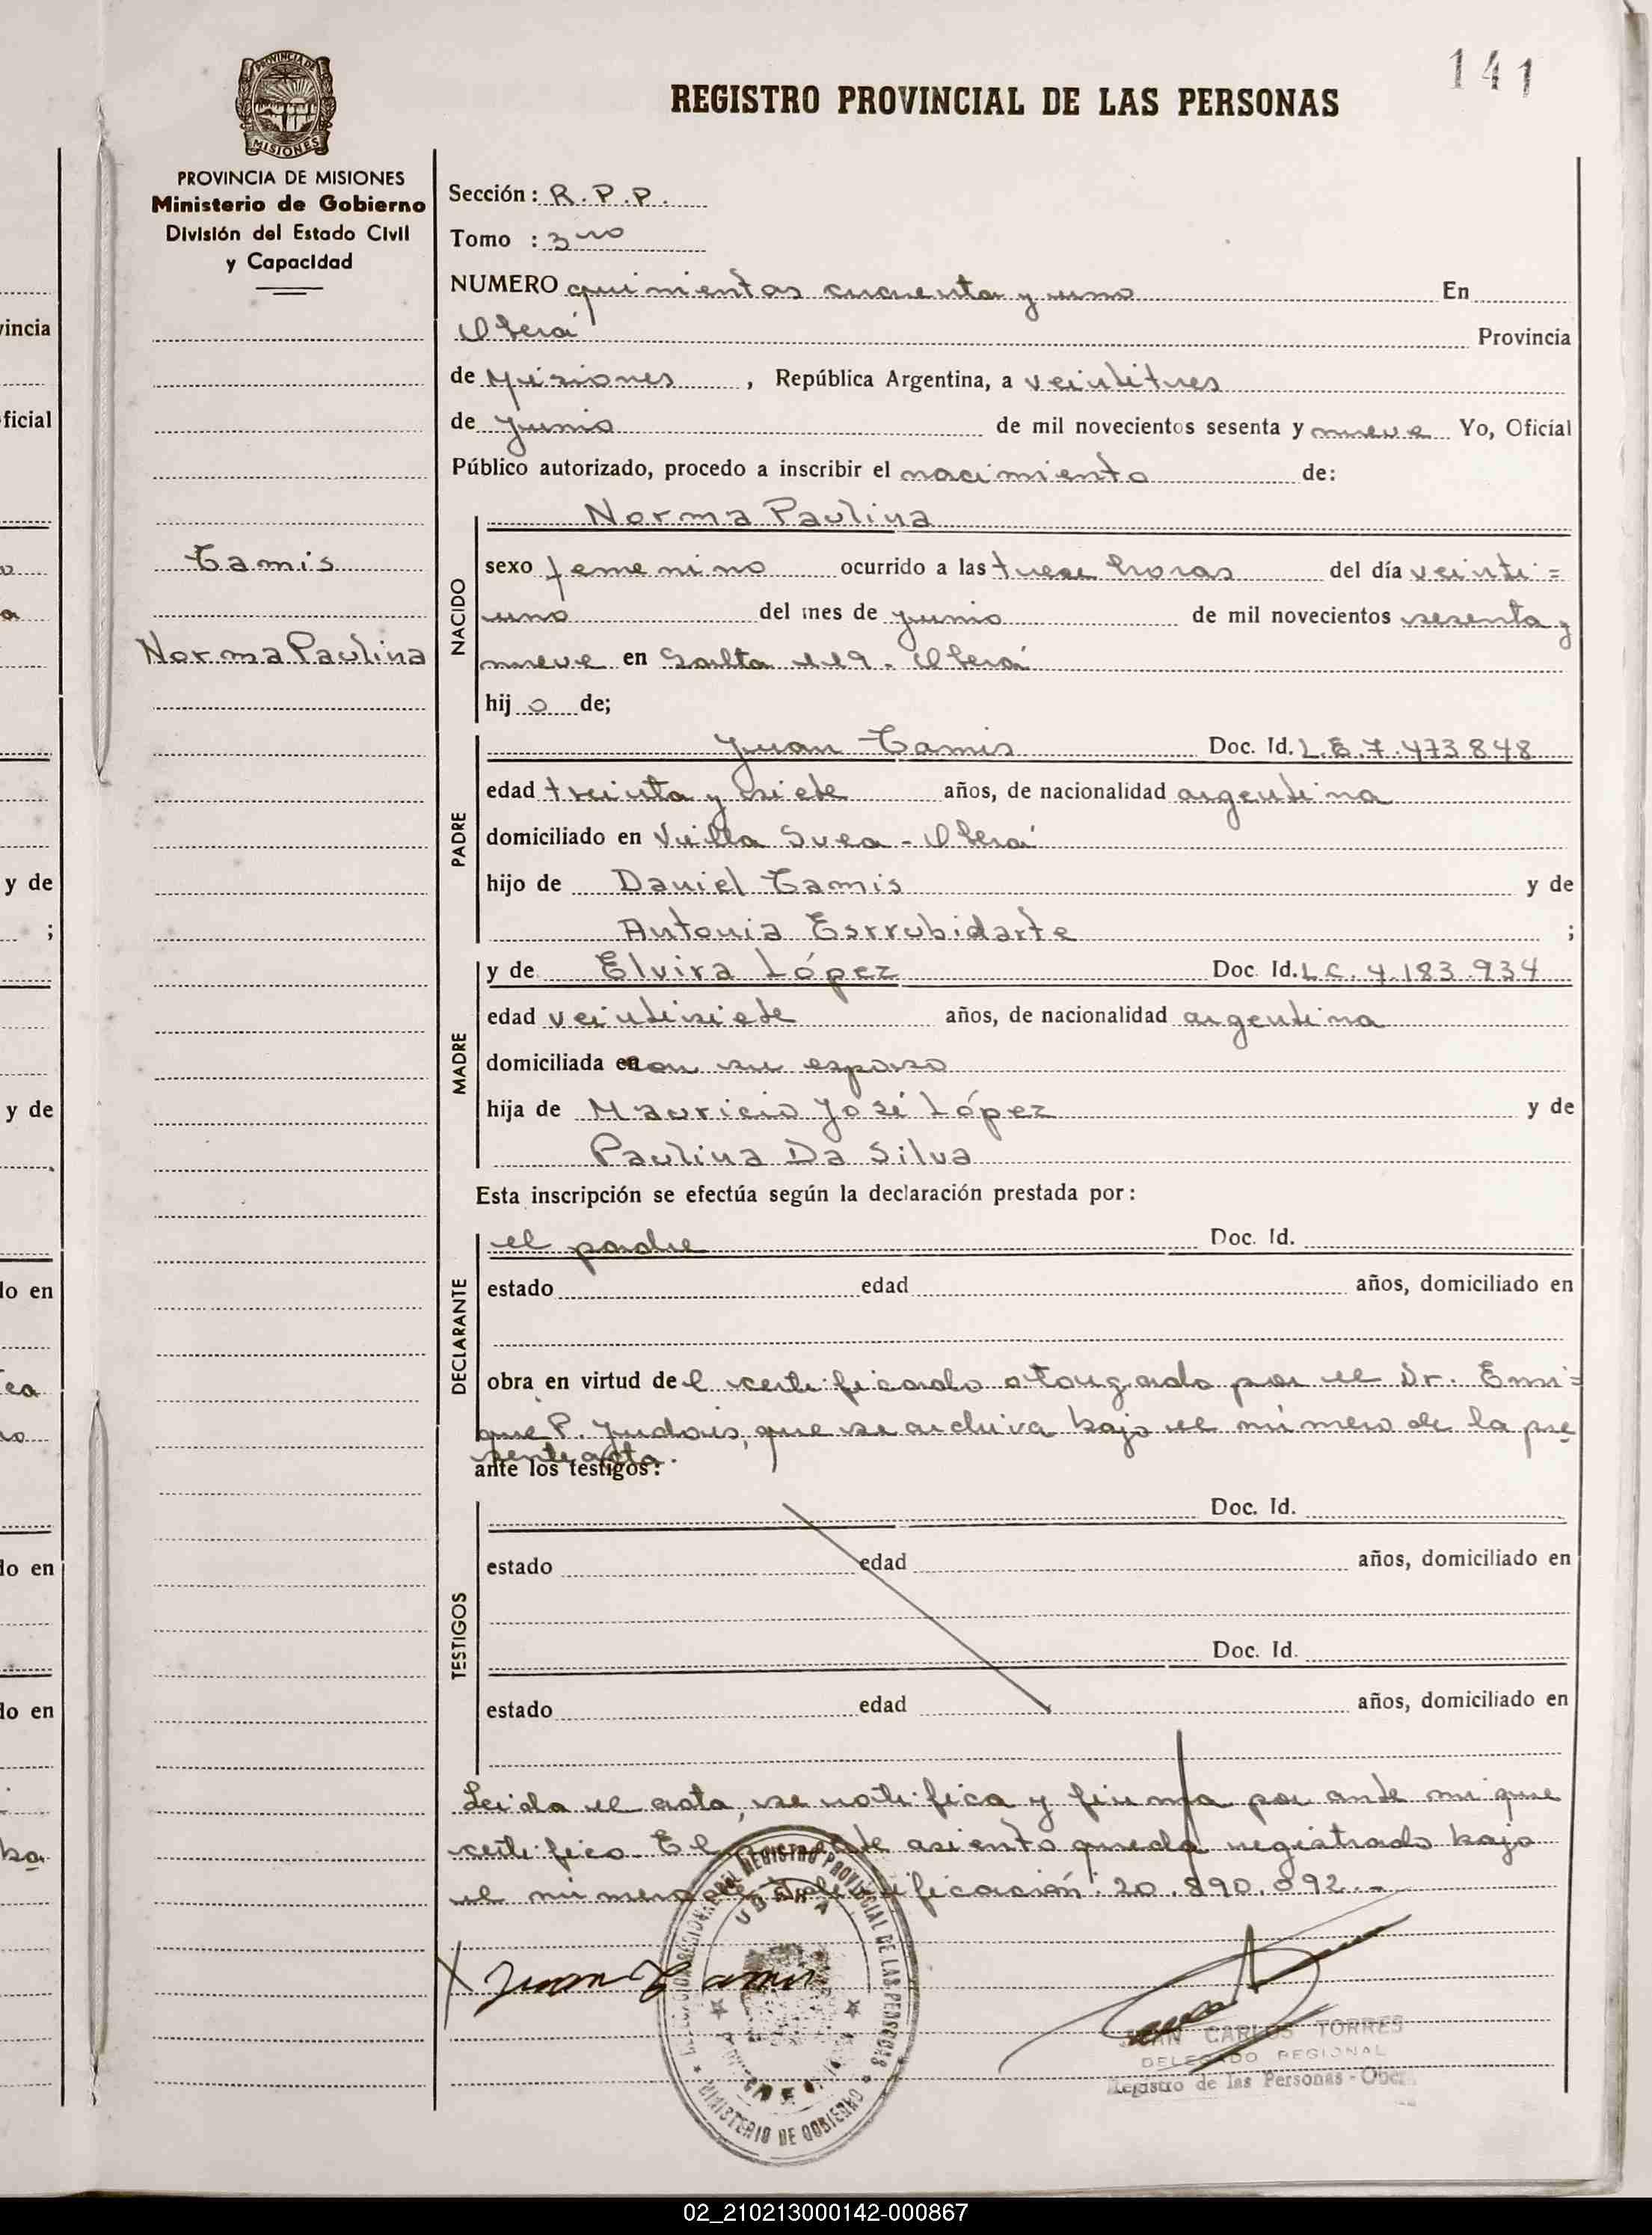 141
REGISTRO PROVINCIAL DE LAS PERSONAS
PROVINCIA DE
MISIONES
PROVINCIA DE MISIONES
Ministerio de Gobierno
División del Estado Civil
y Capacidad
Tamis
Norma Paulina
Sección: R.P.P.
Tomo : 3ro
NUMERO quinientos cuarenta y uno En
Oberá Provincia
de Misiones, República Argentina, a veintitres
de Junio de mil novecientos sesenta y nueve Yo, Oficial
Público autorizado, procedo a inscribir el nacimiento de:
NACIDO
Norma Paulina
sexo femenino ocurrido a las trece horas del día veinti=
uno del mes de Junio de mil novecientos sesenta y
nueve en Salta 119. Oberá
hij o de;
PADRE
Juan Tamis Doc. Id. L.E.7.473.848
edad treinta y siete años, de nacionalidad argentina
domiciliado en Villa Svea - Oberá
hijo de Daniel Tamis y de
Antonia Esrrubidarte ;
MADRE
y de Elvira López Doc. Id. L.C. 4.183.934
edad veintisiete años, de nacionalidad argentina
domiciliada en con su esposo
hija de Mauricio José López y de
Paulina Da Silva
Esta inscripción se efectúa según la declaración prestada por:
DECLARANTE
el padre Doc. Id.
estado edad años, domiciliado en
obra en virtud de l certificado otorgado por el Dr. Enri=
que P. que se archiva bajo el número de la pre
sente acta.
ante los testigos:
TESTIGOS
Doc. Id.
estado edad años, domiciliado en
Doc. Id.
estado edad años, domiciliado en
Leida el acta, se notifica y firma por ante mi que
certifico. El presente asiento queda registrado bajo
el número de identificación: 20.890.892.-
REGISTRO PROVINCIAL DE LAS PERSONAS
OBERA
MINISTERIO DE GOBIERNO
X Juan Tamis
JUAN CARLOS TORRES
DELEGADO REGIONAL
Registro de las Personas - Ober
vincia
ficial
y de
;
y de
do en
do en
do en
02_210213000142-000867